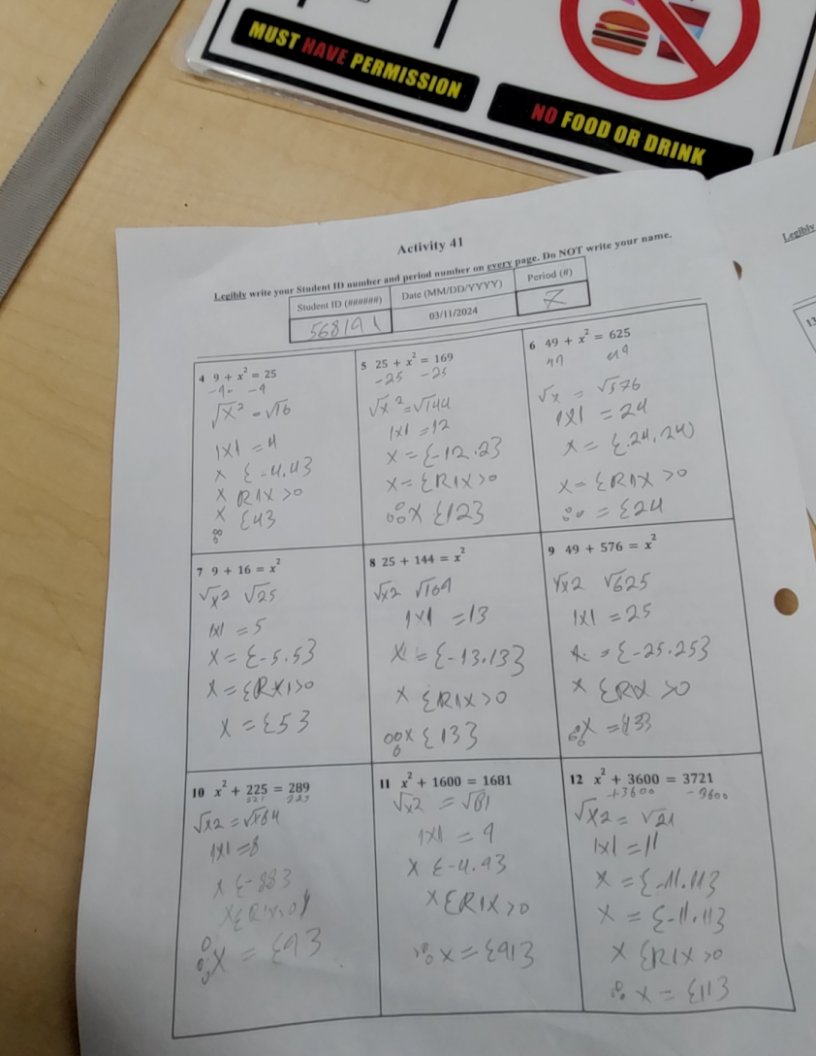 MUST HAVE PERMISSION
NO FOOD OR DRINK
Activity 41
Legibly write your Student ID number and period number on every page. Do NOT write your name.
Student ID (######)
Date (MM/DD/YYYY)
Period (#)
568191
03/11/2024
Legibly
13
4 9 + x² = 25
-9 -9
√x² = √16
|x| = 4
x {-4.43
x R|x >0
x {43
5 25 + x² = 169
-25 -25
√x² = √144
|x| = 12
x = {-12.23
x = {R|x >0
x {123
6 49 + x² = 625
√x = √576
|x| = 24
x = {.24,24)
x = {R|x >0
= {24
7 9 + 16 = x²
√x2 √25
|x| = 5
x = {-5.53
x = {Rx|>0
x = {53
8 25 + 144 = x²
√x2 √169
|x| = 13
x = {-13.133
x {R|x >0
x {133
9 49 + 576 = x²
√x2 √625
|x| = 25
x = {-25.253
x {RX >0
10 x² + 225 = 289
|x| = 8
x {-883
x = {93
11 x² + 1600 = 1681
√x2 = √81
|x| = 9
x {-4.93
x {R|x >0
x = {913
12 x² + 3600 = 3721
+3600 -3600
√x2 = √21
|x| = 11
x = {-11.113
x = {-11.113
x {R|x >0
x = {113